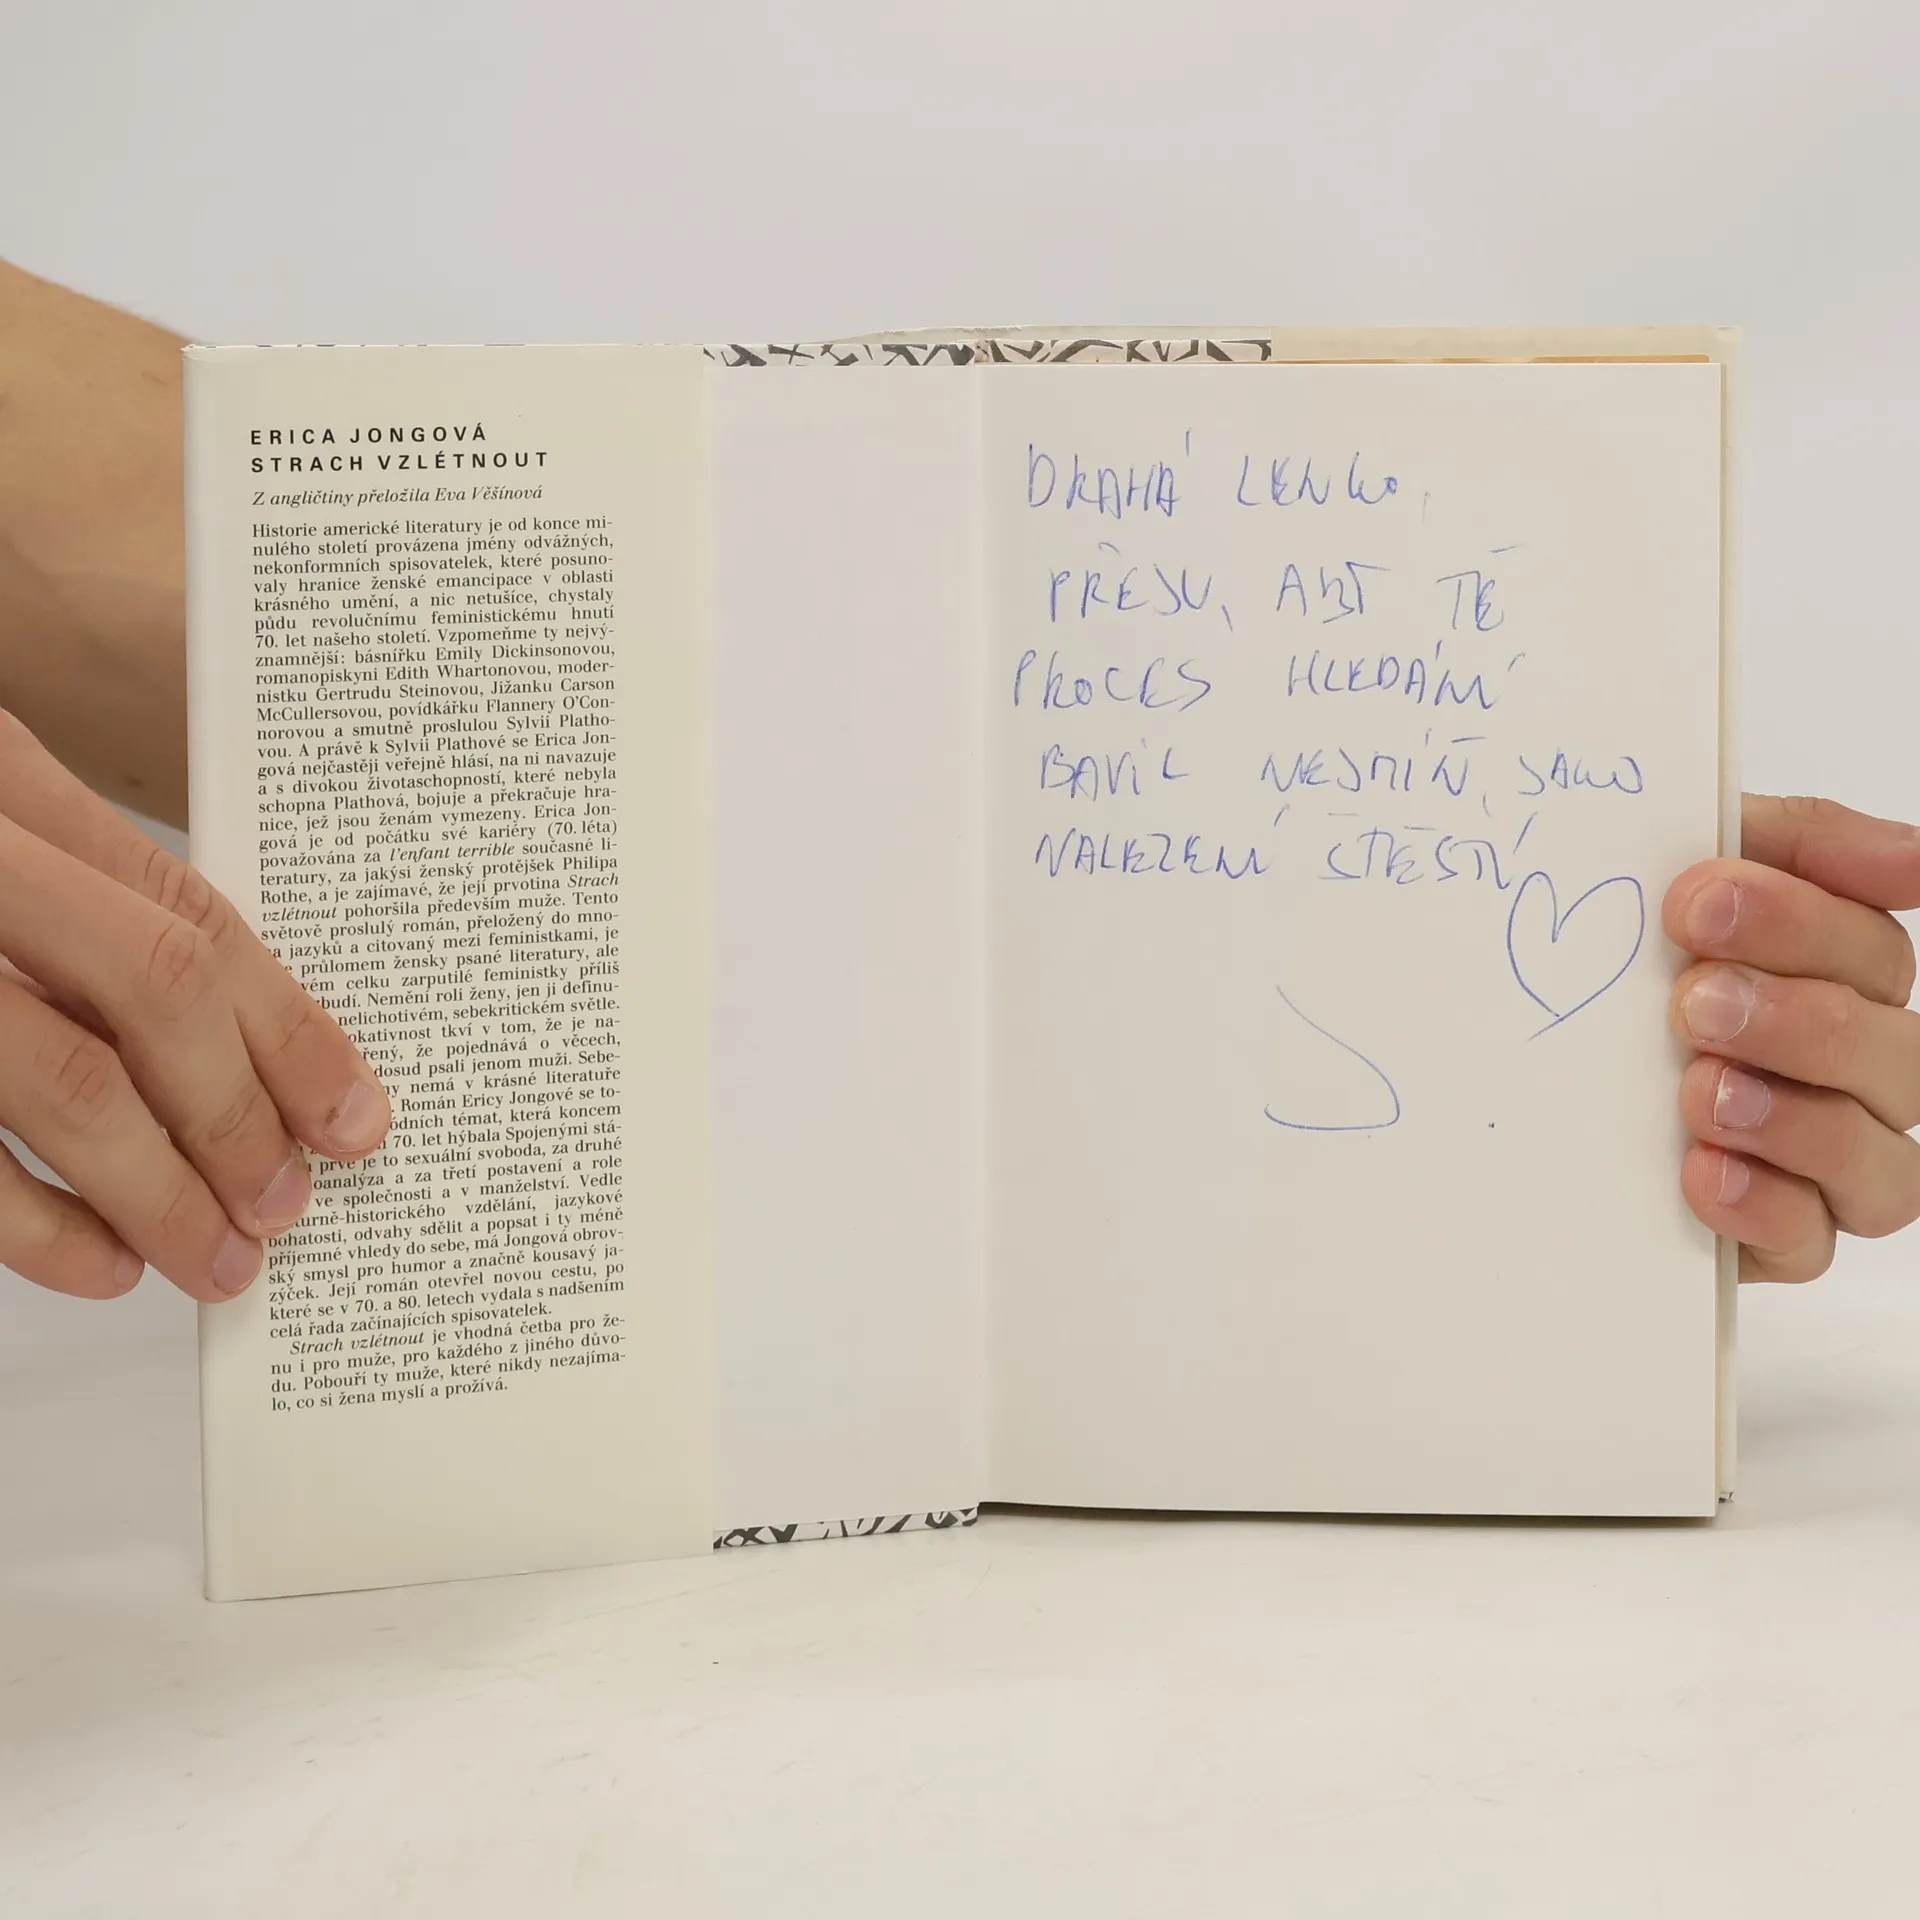 ERICA JONGOVÁ
STRACH VZLÉTNOUT
Z angličtiny přeložila Eva Věšínová
Historie americké literatury je od konce mi-
nulého století provázena jmény odvážných,
nekonformních spisovatelek, které posuno-
valy hranice ženské emancipace v oblasti
krásného umění, a nic netušíce, chystaly
půdu revolučnímu feministickému hnutí
70. let našeho století. Vzpomeňme ty nejvý-
znamnější: básnířku Emily Dickinsonovou,
romanopiskyni Edith Whartonovou, moder-
nistku Gertrudu Steinovou, Jižanku Carson
McCullersovou, povídkářku Flannery O'Con-
norovou a smutně proslulou Sylvii Platho-
vou. A právě k Sylvii Plathové se Erica Jon-
gová nejčastěji veřejně hlásí, na ni navazuje
a s divokou životaschopností, které nebyla
schopna Plathová, bojuje a překračuje hra-
nice, jež jsou ženám vymezeny. Erica Jon-
gová je od počátku své kariéry (70. léta)
považována za l'enfant terrible současné li-
teratury, za jakýsi ženský protějšek Philipa
Rothe, a je zajímavé, že její prvotina Strach
vzlétnout pohoršila především muže. Tento
světově proslulý román, přeložený do mno-
a jazyků a citovaný mezi feministkami, je
průlomem žensky psané literatury, ale
vém celku zarputilé feministky příliš
budí. Nemění roli ženy, jen ji definu-
nelichotivém, sebekritickém světle.
okativnost tkví v tom, že je na-
řený, že pojednává o věcech,
dosud psali jenom muži. Sebe-
ny nemá v krásné literatuře
. Román Ericy Jongové se to-
ódních témat, která koncem
70. let hýbala Spojenými stá-
prvé je to sexuální svoboda, za druhé
oanalýza a za třetí postavení a role
ve společnosti a v manželství. Vedle
urně-historického vzdělání, jazykové
bohatosti, odvahy sdělit a popsat i ty méně
příjemné vhledy do sebe, má Jongová obrov-
ský smysl pro humor a značně kousavý ja-
zýček. Její román otevřel novou cestu, po
které se v 70. a 80. letech vydala s nadšením
celá řada začínajících spisovatelek.
Strach vzlétnout je vhodná četba pro že-
nu i pro muže, pro každého z jiného důvo-
du. Pobouří ty muže, které nikdy nezajíma-
lo, co si žena myslí a prožívá.
DRAHÁ LENKO,
PŘEJU, ABY TĚ
PROCES HLEDÁNÍ
BAVIL NEJMÍŇ, JAKO
NALEZENÍ ŠTĚSTÍ
J.